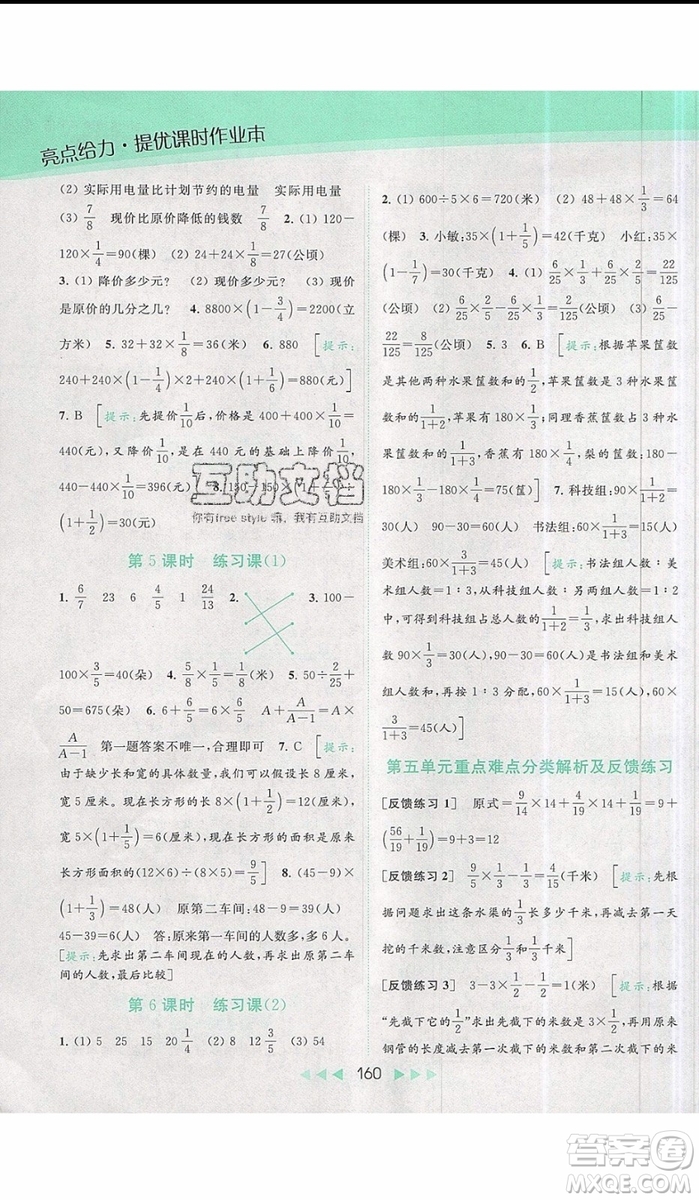 亮点给力·提优课时作业本
(2) 实际用电量比计划节约的电量 实际用电量
(3) 7/8 现价比原价降低的钱数 7/8 2. (1) 120－
120×1/4=90(棵) (2) 24+24×1/8=27(公顷)
3. (1) 降价多少元? (2) 现价多少元? (3) 现价
是原价的几分之几? 4. 8800×(1－3/4)=2200(立
方米) 5. 32+32×1/8=36(米) 6. 880 [提示:
240+240×(1－1/4)×2+240×(1+1/6)=880(元)]
7. B [提示:先提价1/10后,价格是400+400×1/10=
440(元),又降价1/10,是在440元的基础上降价
440－440×1/10=396(元) 8.
(1+1/4)=30(元)
第5课时 练习课(1)
1. 6/7 23 6 4/5 1 24/13 2. 3. 100－
100×3/5=40(朵) 4. 5/8×1/5=1/8(米) 5. 50÷2/25+
50=675(朵) 6. 6+6/5=6×6/5 A+A/(A－1)=A×
A/(A－1) 第一题答案不唯一,合理即可 7. C [提示:
假如缩小长和宽后的长方形的长是8厘米,
宽5厘米,则原来长方形的长是8×(1+1/2)=
12(厘米),宽是5×(1+1/5)=6(厘米)。原来
长方形的面积是缩小长和宽后长方形的面积
的(12×6)÷(8×5)=9/5] 8. (45－9)×
(1+1/3)=48(人) 原第二车间:48－9=39(人)
45－39=6(人) 答:原来第一车间的人数多6人。
[提示:先求出第二车间现在的人数,再求出原
来的人数,最后比较]
第6课时 练习课(2)
1. (1) 5 25 15 20 1/4 (2) 8 12 3/5 (3) 54
2. (1) 600÷5×6=720(米) (2) 48+48×1/3=64
(棵) 3. 小敏:35×(1+1/5)=42(千克) 小红:35×
(1－1/7)=30(千克) 4. (1) 6/25 6/25×1/5+6/25=22/125
(公顷) 6/25×1/3=8/125(公顷) (2) 6/25－22/125=8/125
22/125=8/125(公顷) 5. 3 6. B [提示:根据苹果筐数
是其他两种水果筐数和的1/2,苹果筐数占3种水
果筐数和的1/(1+2),苹果有180×1/(1+2);同理香蕉筐
数是其他两种水果筐数和的1/3,香蕉筐数占3种
水果筐数和的1/(1+3),香蕉有180×1/(1+3),梨的筐数是
180－180×1/3－180×1/4=75(筐)] 7. 科技组:90×
1/3=30(人) 90－30=60(人) 书法组:60×1/(1+3)=15(人)
美术组:60×3/(1+3)=45(人) [提示:书法组人数∶美
术组人数=1∶3,从科技组人数∶其他人数=1∶2
中,可得到科技组占总人数的1/3,求出科技组人
数90×1/(1+2)=30(人),再求出书法组和美术
组人数和,再按1∶3分配,求出美术组人数,60×
3/(1+3)=45(人)]
第五单元重点难点分类解析及反馈练习
[反馈练习1] 原式=9/14×14+14/19×14×1/14+
(56/19+1/19)=9+3=12
[反馈练习2] 9/5×1/3－1/3=4/15(千米) [提示:先根
据问题求出这条水渠的长度,再求出第一天
挖的千米数,注意区分两个1/3]
[反馈练习3] 3－3×1/2－1/2=1(米) [提示:根据
“先截下它的1/2”求出先截下的米数,再从原来
钢管的长度减去第一次截下的米数和第二次截下的米
160
互助文档
你有free style嘛,我有互助文档
答案圈
MXQE.COM